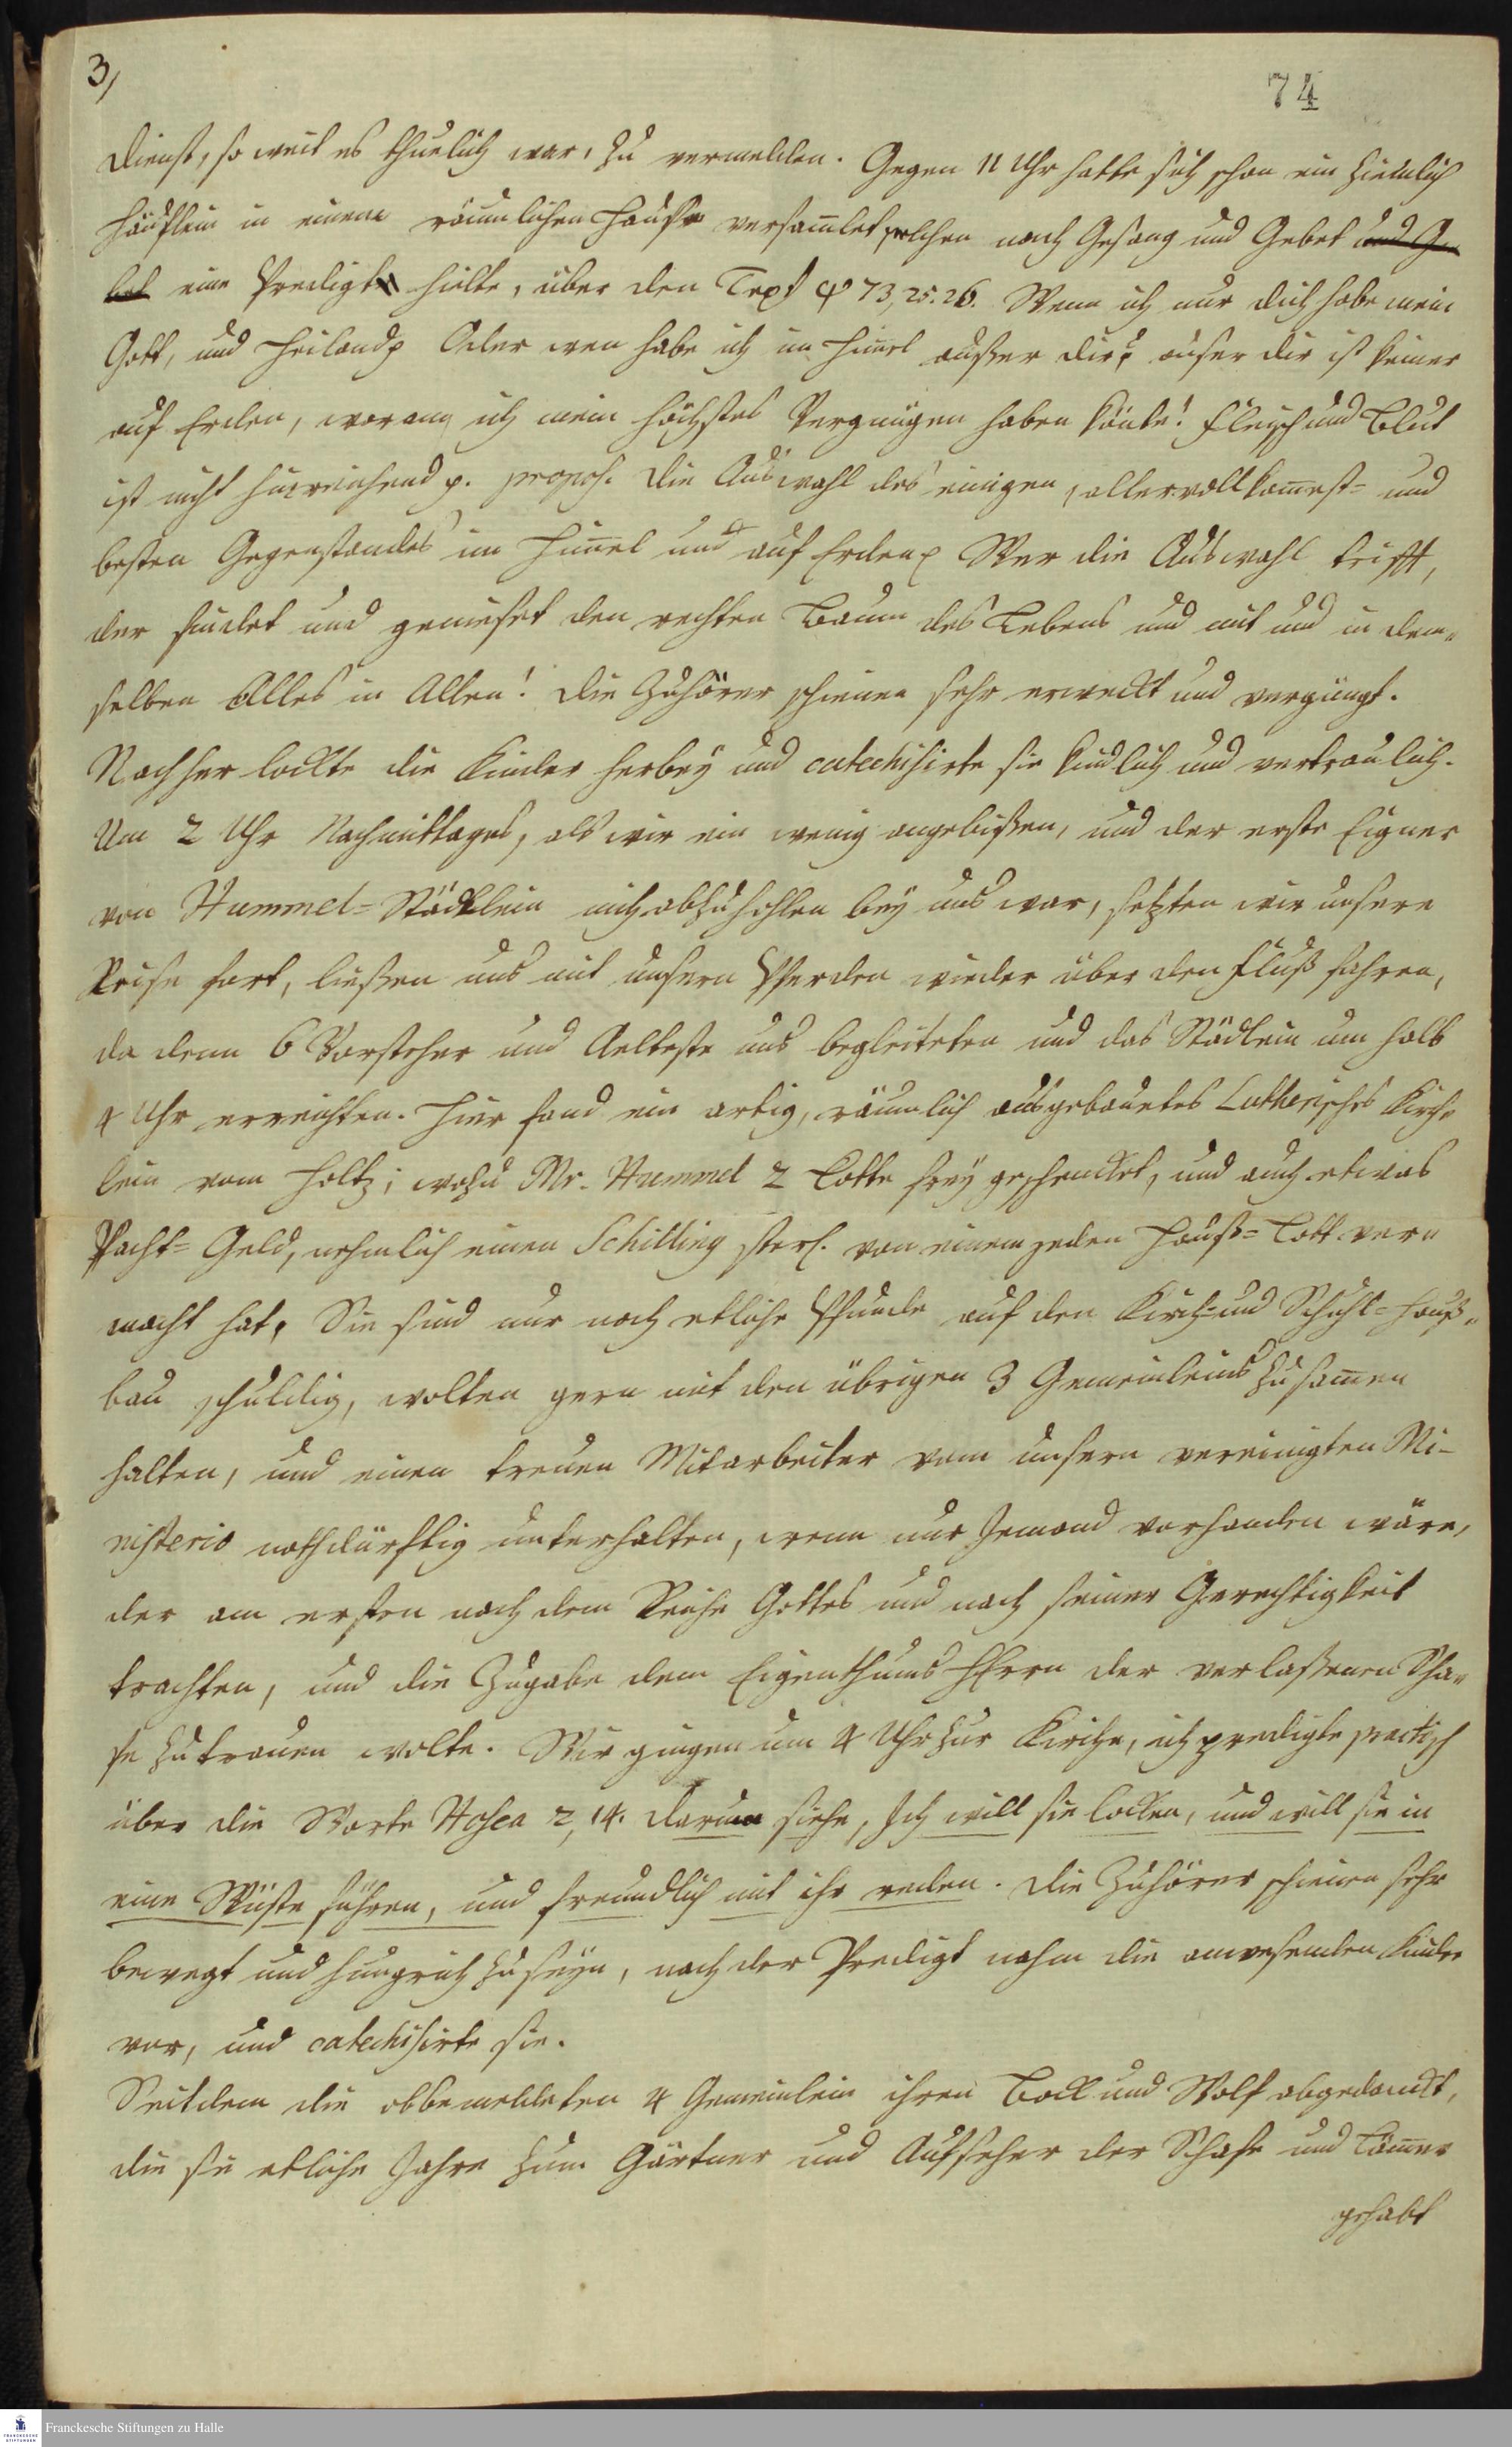 3,
74
Dienst, so weit es thuelich war, zu vermelden. Gegen 11 Uhr hatte sich schon ein ziemlich
Häuflein in einem räumlichen Hause versam̅let, welchen nach Gesang und Gebet und Ge-
bet eine Predigt hielte, über den Text Ψ 73, 25. 26. Wenn ich nur dich habe mein
Gott, und Heiland p Oder wen habe ich im Him̅el außer dir? außer dir ist keiner
auf Erden, woran ich mein höchstes Vergnügen haben kön̅te! Fleisch und Blut
ist nicht hinreichend p. propos. Die Auswahl des einigen, allervollkom̅enst- und
besten Gegenstandes im Him̅el und auf Erden p Wer die Auswahl trifft,
der findet und genießet den rechten Baum des Lebens und mit und in dem-
selben Alles in Allen! Die Zuhörer schienen sehr erweckt und vergnügt.
Nachher lockte die Kinder herbey und catechisirte sie kindlich und vertraulich.
Um 2 Uhr Nachmittages, als wir ein wenig angebißen, und der erste Eigner
von Hummel-Städtlein mich abzuhohlen bey uns war, setzten wir unsere
Reise fort, ließen uns mit unsern Pferden wieder über den Fluß fahren,
da denn 6 Vorsteher und Aelteste uns begleiteten und das Städlein um halb
4 Uhr erreichten. Hier fand ein artig, räumlich ausgebauetes Lutherisches Kirch-
lein vom Holtz; wozu Mr. Hummel 2 Lotte frey geschencket, und auch etwas
Pacht-Geld, nehmlich einen Schilling sterl. von einem jeden Hauß-Lott ver-
macht hat. Sie sind nur noch etliche Pfunde auf den Kirch- und Schuhl-Hauß-
bau schuldig, wolten gern mit den übrigen 3 Gemeinleins zusam̅en
halten, und einen treuen Mitarbeiter vom unsern vereinigten Mi-
nisterio nothdürftig unterhalten, wenn nur Jemand vorhanden wäre,
der am ersten nach dem Reiche Gottes und nach seiner Gerechtigkeit
trachten, und die Zugabe dem Eigenthums HErrn der verlaßenen Scha-
fe zutrauen wolte. Wir gingen um 4 Uhr zur Kirche, ich predigte practisch
über die Worte Hosea 2, 14. Darum siehe, Ich will sie locken, und will sie in
eine Wüste führen, und freundlich mit ihr reden. Die Zuhörer schienen sehr
bewegt und hungrich zu seyn, nach der Predigt nahm die anwesenden Kinder
vor, und catechisirte sie.
Seitdem die obbemeldeten 4 Gemeinlein ihren Bock und Wolf abgedanckt,
die sie etliche Jahre zum Gärtner und Aufseher der Schafe und Läm̅er
gehabt
Franckesche Stiftungen zu Halle